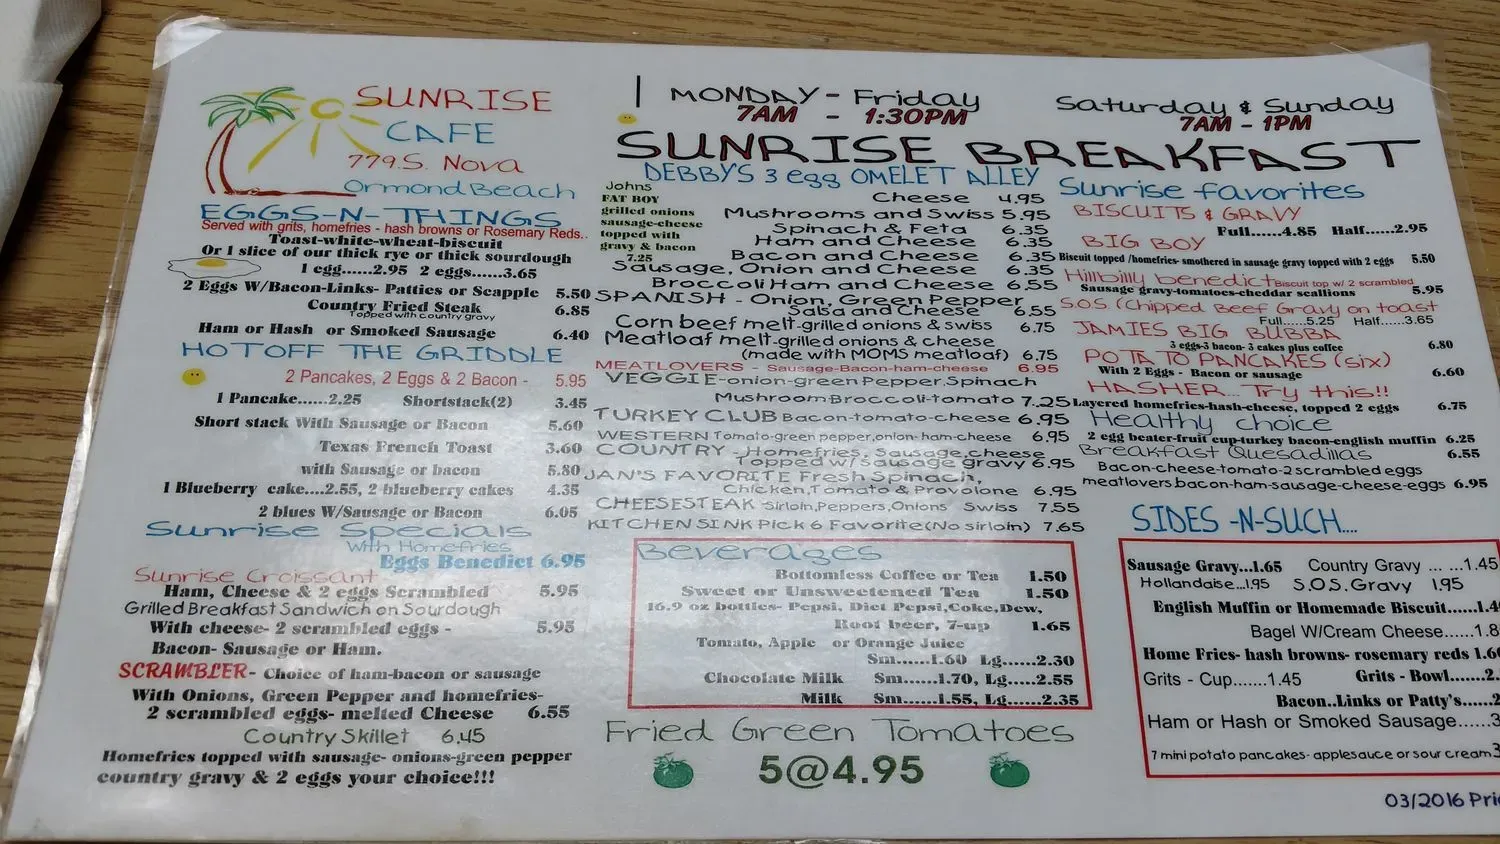 SUNRISE
CAFE
779 S. Nova
Ormond Beach
EGGS-N-THINGS
Served with grits, homefries - hash browns or Rosemary Reds..
Toast-white-wheat-biscuit
Or 1 slice of our thick rye or thick sourdough
1 egg......2.95 2 eggs......3.65
2 Eggs W/Bacon-Links- Patties or Scapple 5.50
Country Fried Steak 6.85
Topped with country gravy
Ham or Hash or Smoked Sausage 6.40
HOT OFF THE GRIDDLE
2 Pancakes, 2 Eggs & 2 Bacon - 5.95
1 Pancake......2.25 Shortstack(2) 3.45
Short stack With Sausage or Bacon 5.60
Texas French Toast 3.60
with Sausage or bacon 5.80
1 Blueberry cake....2.55, 2 blueberry cakes 4.35
2 blues W/Sausage or Bacon 6.05
Sunrise Specials
With Homefries
Eggs Benedict 6.95
Sunrise Croissant
Ham, Cheese & 2 eggs Scrambled 5.95
Grilled Breakfast Sandwich on Sourdough
With cheese- 2 scrambled eggs - 5.95
Bacon- Sausage or Ham.
SCRAMBLER- Choice of ham-bacon or sausage
With Onions, Green Pepper and homefries-
2 scrambled eggs- melted Cheese 6.55
Country Skillet 6.45
Homefries topped with sausage- onions-green pepper
country gravy & 2 eggs your choice!!!
MONDAY - Friday
7AM - 1:30PM
Saturday & Sunday
7AM - 1PM
SUNRISE BREAKFAST
DEBBY'S 3 egg OMELET ALLEY
Johns
FAT BOY
grilled onions
sausage-cheese
topped with
gravy & bacon
7.25
Cheese 4.95
Mushrooms and Swiss 5.95
Spinach & Feta 6.35
Ham and Cheese 6.35
Bacon and Cheese 6.35
Sausage, Onion and Cheese 6.35
Broccoli Ham and Cheese 6.55
SPANISH - Onion, Green Pepper
Salsa and Cheese 6.55
Corn beef melt-grilled onions & swiss 6.75
Meatloaf melt-grilled onions & cheese
(made with MOMS meatloaf) 6.75
MEATLOVERS - Sausage-Bacon-ham-cheese 6.95
VEGGIE-onion-green Pepper,Spinach
Mushroom Broccoli-tomato 7.25
TURKEY CLUB Bacon-tomato-cheese 6.95
WESTERN Tomato-green pepper,onion-ham-cheese 6.95
COUNTRY -Homefries, Sausage,cheese
Topped w/ sausage gravy 6.95
JAN'S FAVORITE Fresh Spinach,
Chicken,Tomato & Provolone 6.95
CHEESESTEAK -Sirloin,Peppers,Onions Swiss 7.55
KITCHEN SINK Pick 6 Favorite(No sirloin) 7.65
Beverages
Bottomless Coffee or Tea 1.50
Sweet or Unsweetened Tea 1.50
16.9 oz bottles- Pepsi, Diet Pepsi,Coke,Dew,
Root beer, 7-up 1.65
Tomato, Apple or Orange Juice
Sm......1.60 Lg......2.30
Chocolate Milk Sm......1.70, Lg......2.55
Milk Sm......1.55, Lg......2.35
Fried Green Tomatoes
5@4.95
Sunrise favorites
BISCUITS & GRAVY
Full......4.85 Half......2.95
BIG BOY
Biscuit topped /homefries- smothered in sausage gravy topped with 2 eggs 5.50
Hillbilly benedict Biscuit top w/ 2 scrambled
Sausage gravy-tomatoes-cheddar scallions 5.95
S.O.S (Chipped Beef Gravy on toast
Full......5.25 Half......3.65
JAMIES BIG BUBBA
3 eggs-3 bacon- 3 cakes plus coffee 6.80
POTATO PANCAKES (six)
With 2 Eggs - Bacon or sausage 6.60
HASHER... Try this!!
Layered homefries-hash-cheese, topped 2 eggs 6.75
Healthy choice
2 egg beater-fruit cup-turkey bacon-english muffin 6.25
Breakfast Quesadillas 6.55
Bacon-cheese-tomato-2 scrambled eggs
meatlovers.bacon-ham-sausage-cheese-eggs 6.95
SIDES -N-SUCH....
Sausage Gravy...1.65 Country Gravy ... ...1.45
Hollandaise...1.95 S.O.S. Gravy 1.95
English Muffin or Homemade Biscuit......1.4
Bagel W/Cream Cheese......1.8
Home Fries- hash browns- rosemary reds 1.60
Grits - Cup.......1.45 Grits - Bowl......2.
Bacon..Links or Patty's......2
Ham or Hash or Smoked Sausage......3
7 mini potato pancakes- applesauce or sour cream 3
03/2016 Pri